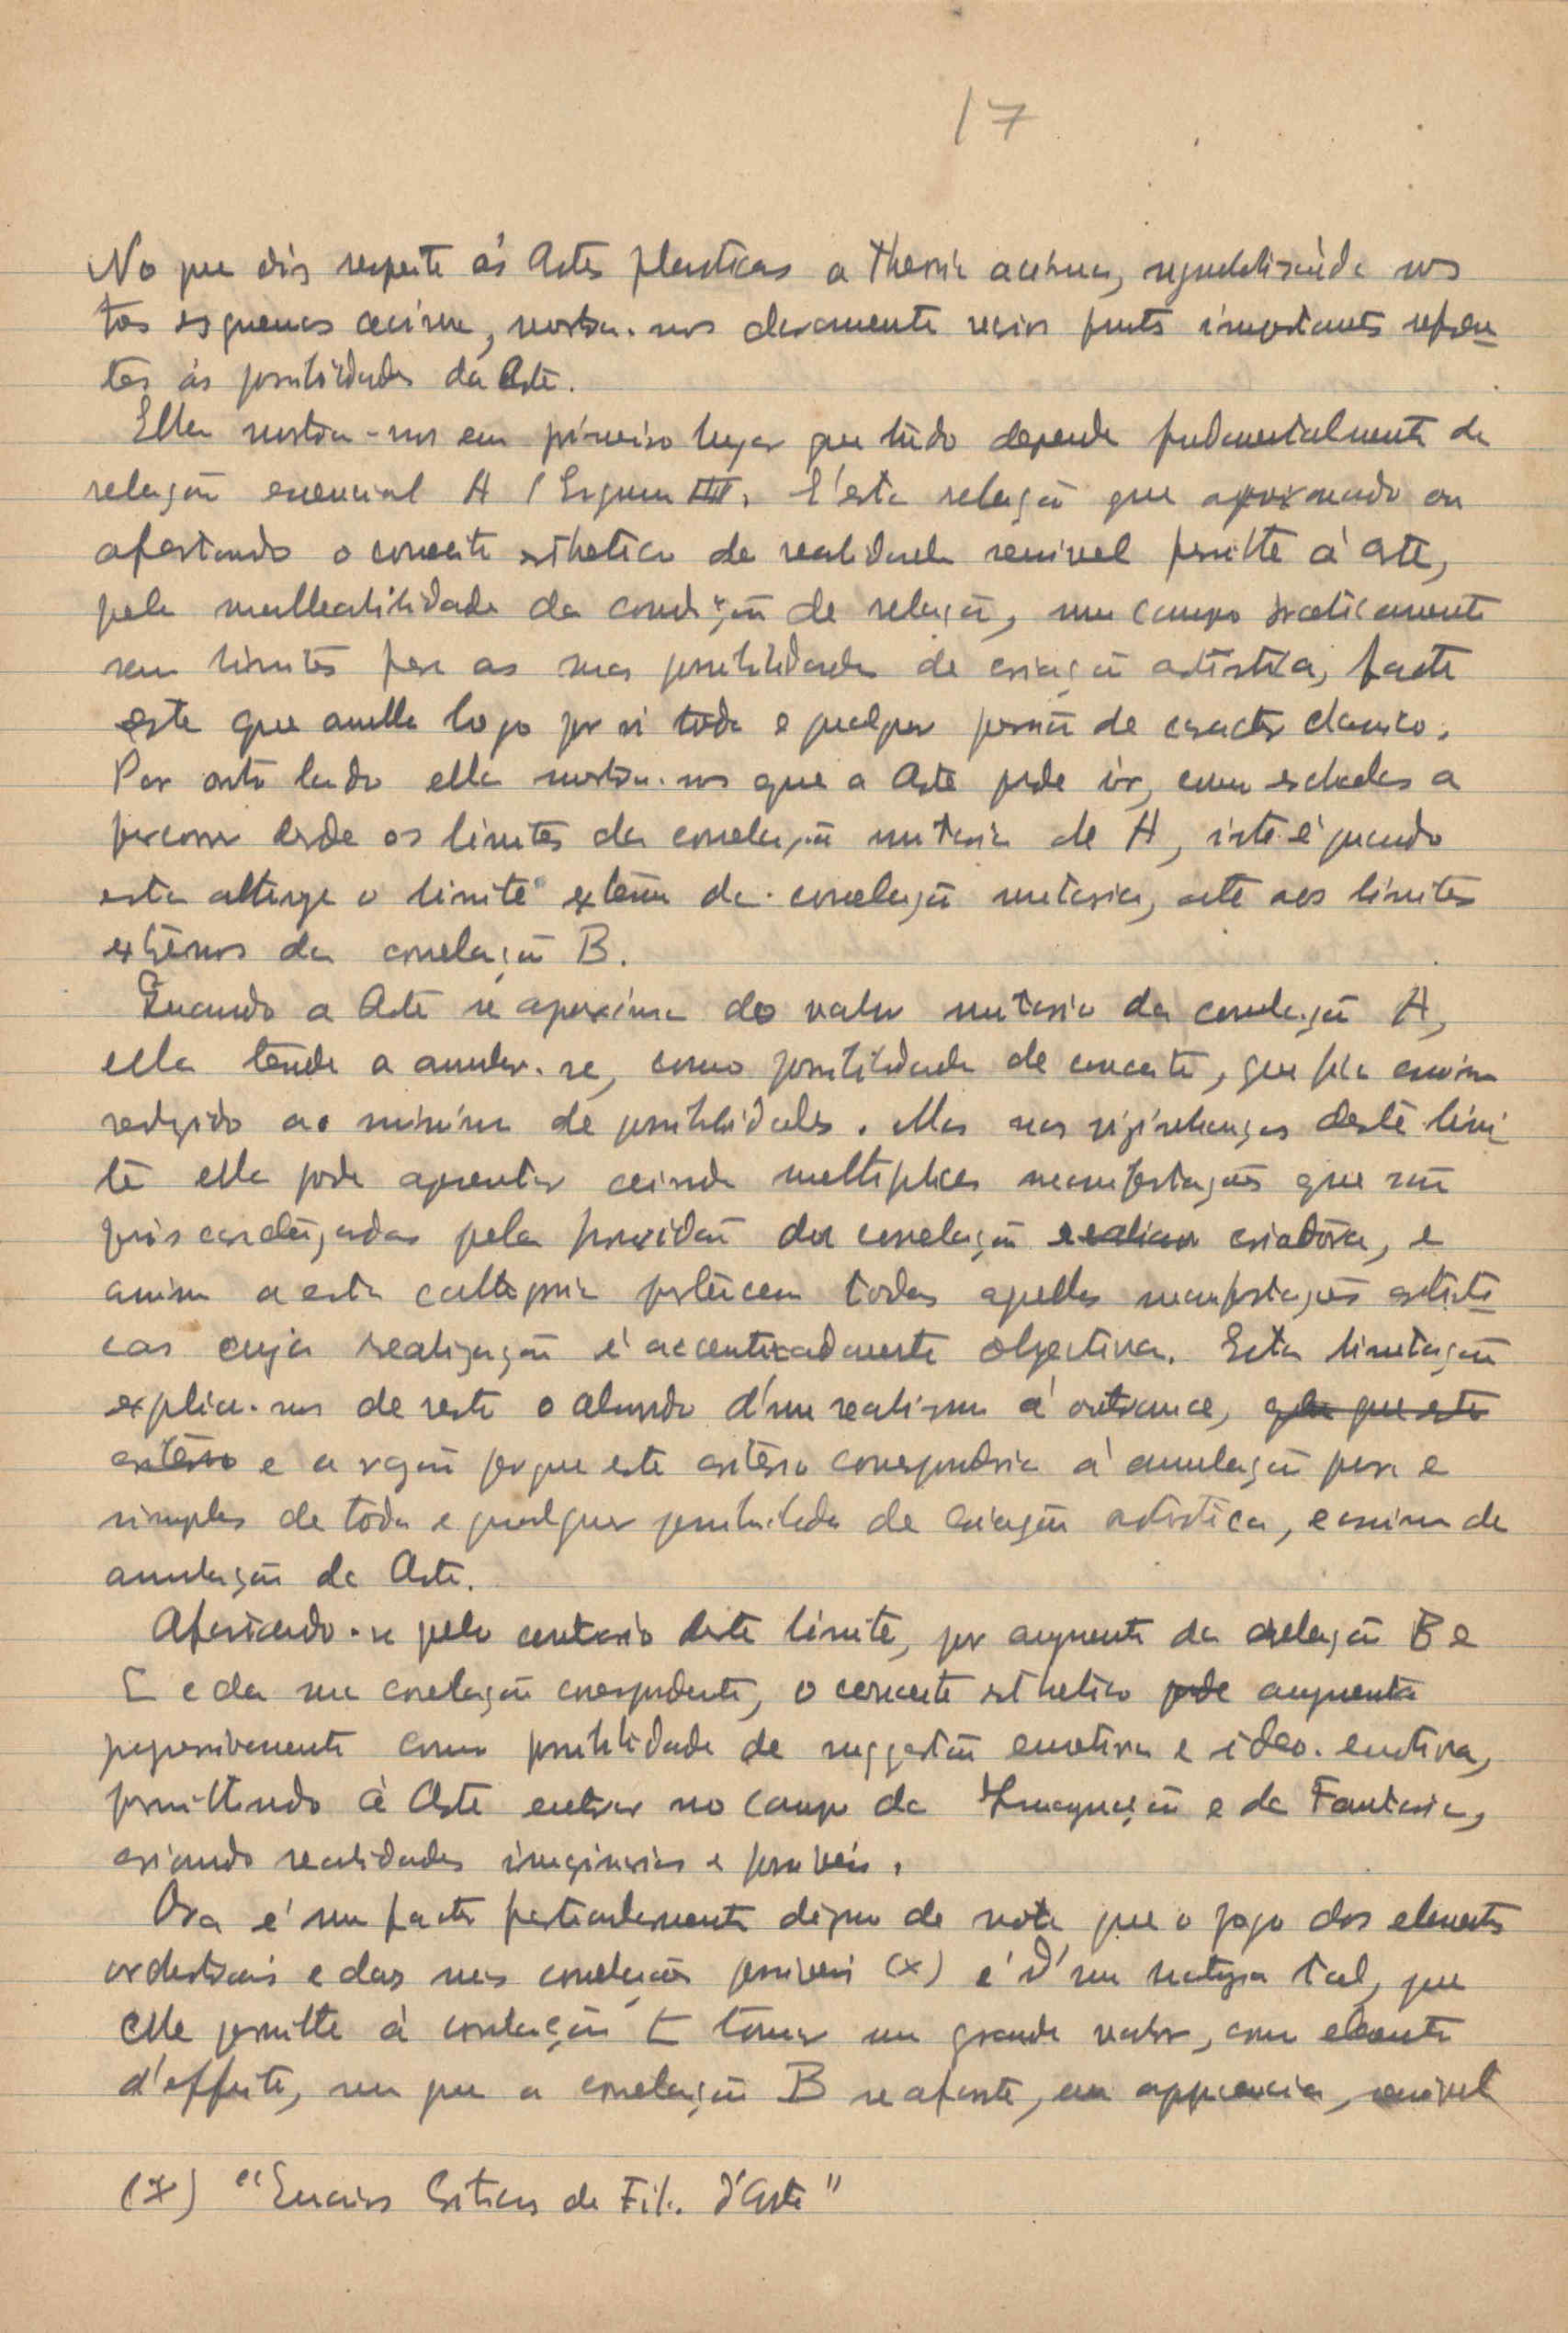 17
No que diz respeito ás Artes plasticas a theoria acima,
tos esquemas acima, mostra-nos claramente varios pontos importantes referen-
tes ás possibilidades da Arte.
Ella mostra-nos em primeiro lugar que tudo depende fundamentalmente da
relação essencial A (Esquema III). É esta relação que aproximando ou
afastando o conceito esthetico da realidade sensivel permitte á arte,
pela malleabilidade da condição de relação, um campo praticamente
sem limites para as suas possibilidades de criação artistica, facto
este que anulla logo por si toda e qualquer de caracter classico.
Por outro lado ella mostra-nos que a Arte pode ir, como a
percorrer desde os limites da correlação unitaria de A, isto é quando
esta attinge o limite extremo da correlação unitaria, até aos limites
extremos da correlação B.
Quando a Arte se aproxima do valor unitario da correlação A,
ella tende a anular-se, como possibilidade de conceito, que fica assim
reduzido ao minimo de possibilidades. Mas nas visinhanças deste limi-
te ella pode apresentar ainda multiplices manifestações que são
pela da correlação criadora, e
assim a esta cathegoria pertencem todas aquellas manifestações artisti-
cas cuja realização é accentuadamente objectiva. Esta limitação
explica-nos de resto o absurdo d'um realismo á outrance, que este
criterio e a razão porque este criterio corresponderia á anulação pura e
simples de toda e qualquer possibilidade de criação artistica, e assim da
anulação da Arte.
Afastando-se pelo contrario deste limite, por augmento da relação B e
C e da sua correlação correspondente, o conceito esthetico pode augmenta
progressivamente como possibilidade de suggestão emotiva e ideo-emotiva,
permittindo á Arte entrar no campo da Imaginação e da Fantasia,
criando realidades imaginarias e possiveis.
Ora é um facto particularmente digno de nota que o jogo dos elementos
orchestrais e das suas correlações possiveis (x) é d'uma natureza tal, que
elle permitte á correlação E tomar um grande valor, como elemento
d'effeito, sem que a correlação B se afaste, em apparencia, sensivel
(x) "Ensaios Criticos de Fil. d'Arte"